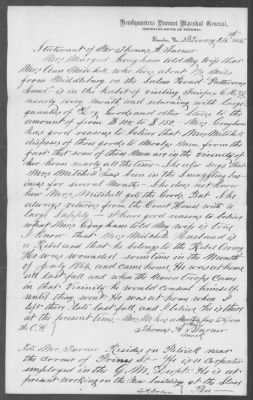 Headquarters Provost Marshal General,
DEFENCES SOUTH OF POTOMAC,
Statement of Mr Thomas A. Turner
Mrs Margret Conyham told My Wife that
Mrs Ann Mitchell who lives about 1½ miles
from Middleburg on the Salem Road "Patterson's
Land" is in the habit of visiting Fairfax C.H.
nearly every month and returning with large
quantities of Dry Goods and other Stores to the
amount of from $100 to $150. Mrs Conyham
has good reasons to believe that Mrs Mitchell
disposes of those goods to Mosby's men, from the
fact that some of them are in the vicinity of
her home nearly all the time. She also says that
Mrs Mitchell has been in the smuggling busi-
ness for several months. She does not know
how Mrs Mitchell gets the Goods, But she
always returns from the Court House with a
large Supply — I have good reasons to believe
what Mrs Conyham told My wife is true
I Know that Mrs Mitchell's Husband is
a Rebel and that he belongs to the Rebel Army
He was wounded some time in the Month
of July 1864 and came home, He was at home
until last fall and when the Union Troops Came
in that vicinity he would conceal himself
until they went He was at home when I
left there late last fall, and I believe he is there
at the present time.
the C.H.
Thomas A. Turner
Note Mr Turner Resides on Patrick near
the corner of Prince St. He is a Carpenter
employed in the Q.M. Dept. He is at
present working on the New building at the